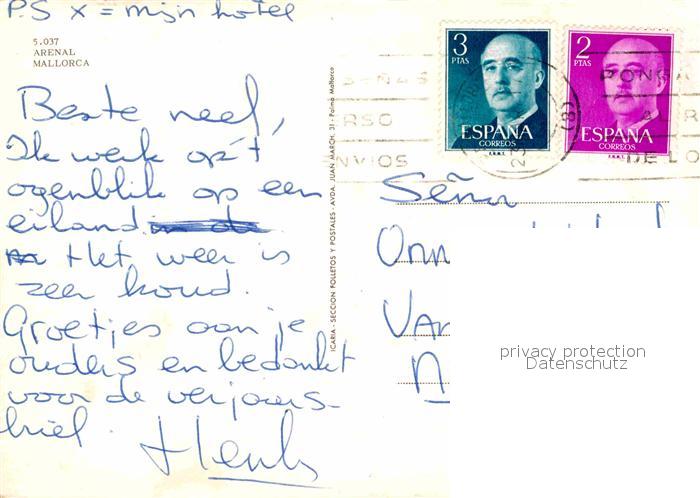 P.S X = mijn hotel
5.037
ARENAL
MALLORCA
Beste neef,
Ik werk op 't
ogenblik op een
eiland
Het weer is
zeer koud.
Groetjes aan je
ouders en bedankt
voor de verjaars-
brief.
ICARIA - SECCION FOLLETOS Y POSTALES - AVDA. JUAN MARCH, 31 - Palma Mallorca
3
PTAS
ESPAÑA
CORREOS
F.N.M.T.
2
PTAS
ESPAÑA
CORREOS
F.N.M.T.
SEÑAS
ERSO
ENVIOS
PONGA
AL R
DE LO
Señor
privacy protection
Datenschutz